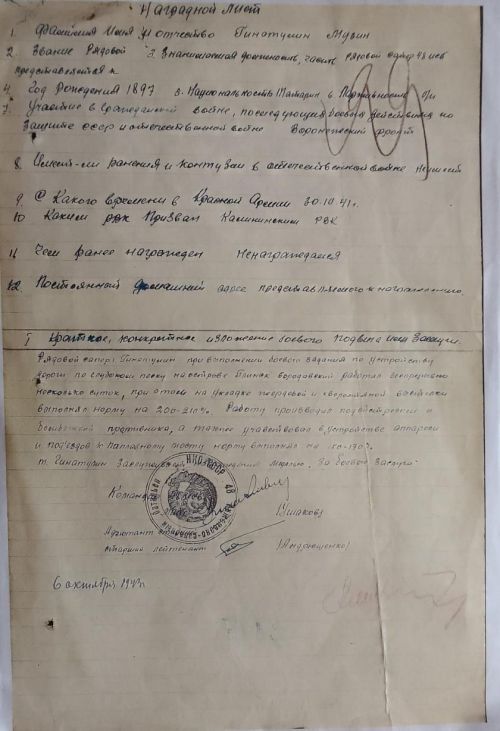 Наградной Лист
1. Фамилия Имя и отчество Гинатулин Музин
2. Звание Рядовой 3. Занимаемая должность, часть рядовой сапер 48
представляется к
4. Год Рождения 1897 5. Национальность Татарин 6. Партийность б/п
7. Участие в гражданской войне, последующих боевых действиях по
защите СССР и отечественной войне Воронежский фронт
8. Имеет-ли ранения и контузии в отечественной войне Не имеет
9. С Какого времени в Красной Армии 30.10.41г.
10 Каким рвк Призван Калининским РВК
11 Чем ранее награжден Ненаграждался
12. Постоянный домашний адрес представляемого к награждению.
I Краткое, конкретное изложение боевого подвига или заслуги.
Рядовой сапер Гинатулин при выполнении боевого задания по устройству
дороги по глубокому песку на острове Глинск Бородаевский работал беспрерывно
несколько суток, при этом на укладке жердевой и хворостяной выстилки
выполнял норму на 200-210%. Работу производил под обстрелом и
бомбежкой противника, а также участвовал в устройстве аппарели
и под'ездов к паромному мосту норму выполнял на 150-170%.
т. Гинатулин Заслуживает За боевые заслуги
Командир
Ушаков
Адъютант
младший лейтенант /Андрющенко/
6 октября 1943г.